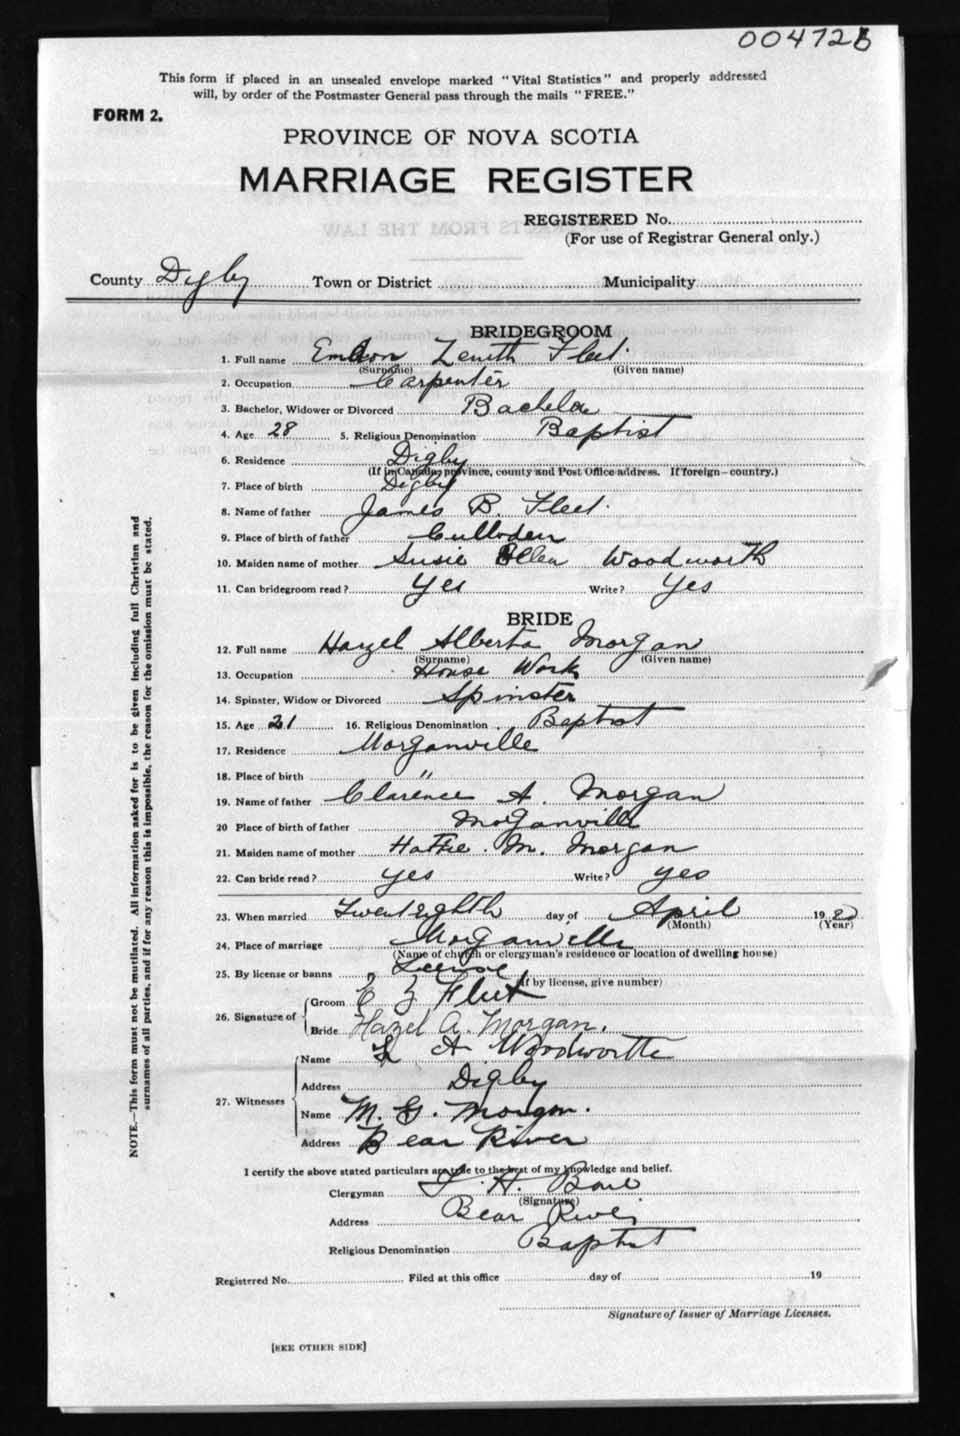 004726
This form if placed in an unsealed envelope marked "Vital Statistics" and properly addressed
will, by order of the Postmaster General pass through the mails "FREE."
FORM 2.
PROVINCE OF NOVA SCOTIA
MARRIAGE REGISTER
REGISTERED No.
(For use of Registrar General only.)
County Digby Town or District Municipality
BRIDEGROOM
1. Full name Zenith Fleet.
(Surname) (Given name)
2. Occupation Carpenter
3. Bachelor, Widower or Divorced Bachelor
4. Age 28 5. Religious Denomination Baptist
6. Residence Digby
(If in Canada, province, county and Post Office address. If foreign—country.)
7. Place of birth Digby
8. Name of father James B. Fleet.
9. Place of birth of father Culloden
10. Maiden name of mother Susie Ellen Woodworth
11. Can bridegroom read? Yes Write? Yes
BRIDE
12. Full name Hazel Alberta Morgan
(Surname) (Given name)
13. Occupation House Work
14. Spinster, Widow or Divorced Spinster
15. Age 21 16. Religious Denomination Baptist
17. Residence Morganville
18. Place of birth "
19. Name of father Clarence A. Morgan
20 Place of birth of father Morganville
21. Maiden name of mother Hattie. M. Morgan
22. Can bride read? yes Write? yes
23. When married Twenteighth day of April 1920
(Month) (Year)
24. Place of marriage Morganville
(Name of church or clergyman's residence or location of dwelling house)
25. By license or banns License
(If by license, give number)
26. Signature of Groom E Z Fleet
Bride Hazel A. Morgan.
27. Witnesses Name A Woodworth
Address Digby
Name M. G. Morgan.
Address Bear River
I certify the above stated particulars are true to the best of my knowledge and belief.
Clergyman H.
(Signature)
Address Bear River
Religious Denomination Baptist
Registered No. Filed at this office day of 19
Signature of Issuer of Marriage Licenses.
[SEE OTHER SIDE]
NOTE.—This form must not be mutilated. All information asked for is to be given including full Christian and
surnames of all parties, and if for any reason this is impossible, the reason for the omission must be stated.